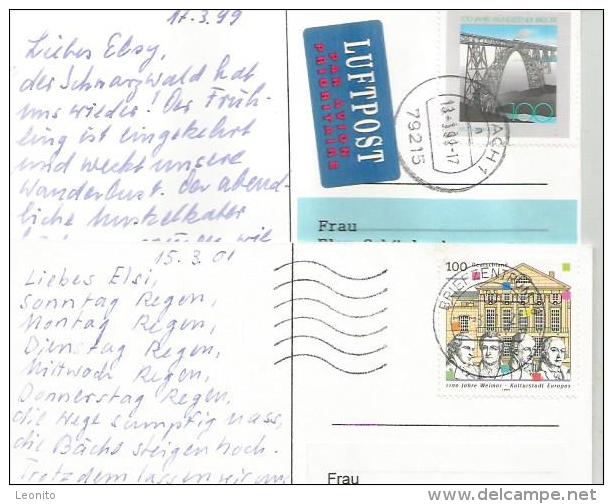 17.3.99
Liebes Elsy,
der Schwarzwald hat
uns wieder! Der Früh-
ling ist eingekehrt
und weckt unsere
Wanderlust. Der abend-
liche Muskelkater
wie
LUFTPOST
PAR AVION
PRIORITAIRE
100 JAHRE MÜNGSTENER BRÜCKE
100
ACH 1
79215
Frau
15.3.01
Liebes Elsi,
Sonntag Regen,
Montag Regen,
Dienstag Regen,
Mittwoch Regen,
Donnerstag Regen,
die Wege sumpfig nass,
die Bächs steigen hoch.
Trotzdem lassen wir uns
100 Deutschland
BRIEFZENTRUM
1100 Jahre Weimar - Kulturstadt Europas
Frau
Leonito
www.delcampe.net